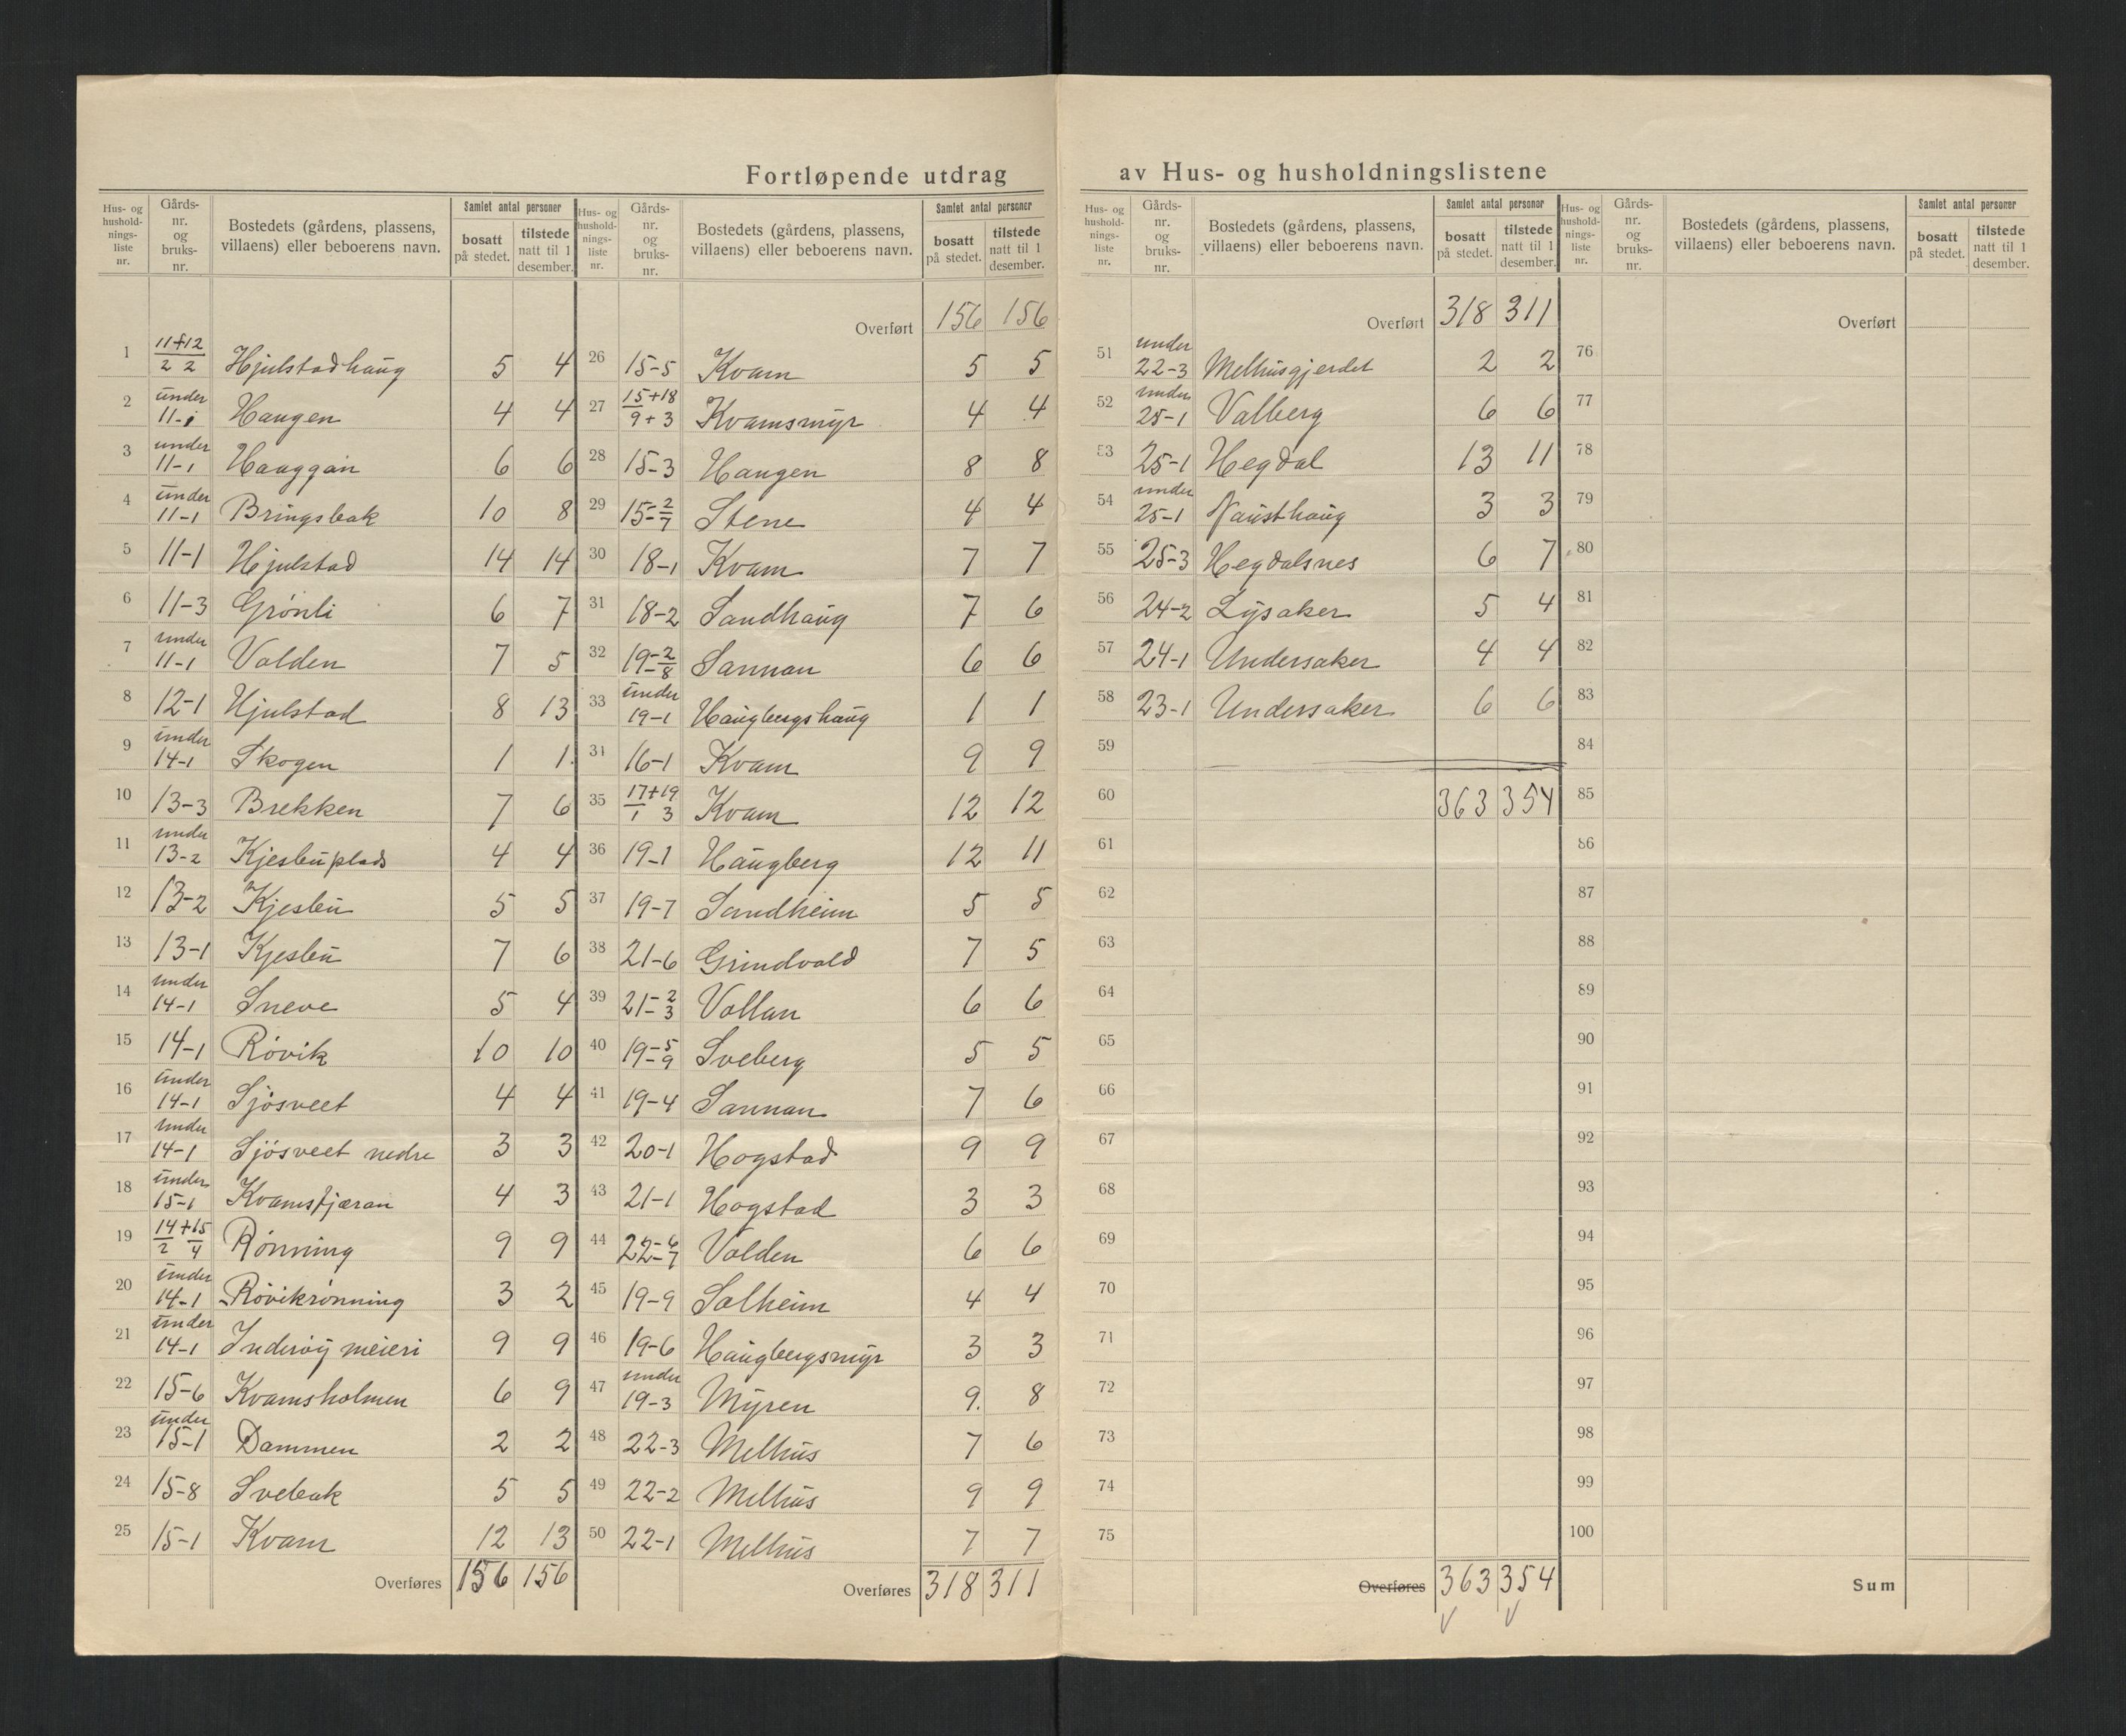 Fortløpende utdrag av Hus- og husholdningslistene
Hus- og hushold-nings-liste nr. | Gårds-nr. og bruks-nr. | Bostedets (gårdens, plassens, villaens) eller beboerens navn. | Samlet antal personer | bosatt på stedet. | tilstede natt til 1 desember.
1 | 11+12 / 2 2 | Hjulstadhaug | 5 | 4
2 | under 11-1 | Haugen | 4 | 4
3 | under 11-1 | Hauggan | 6 | 6
4 | under 11-1 | Bringsbak | 10 | 8
5 | 11-1 | Hjulstad | 14 | 14
6 | 11-3 | Grönli | 6 | 7
7 | under 11-1 | Volden | 7 | 5
8 | 12-1 | Hjulstad | 8 | 13
9 | under 14-1 | Skogen | 1 | 1
10 | 13-3 | Brekken | 7 | 6
11 | under 13-2 | Kjesbuplads | 4 | 4
12 | 13-2 | Kjesbu | 5 | 5
13 | 13-1 | Kjesbu | 7 | 6
14 | under 14-1 | Sneve | 5 | 4
15 | 14-1 | Rövik | 10 | 10
16 | under 14-1 | Sjösveet | 4 | 4
17 | under 14-1 | Sjösveet nedre | 3 | 3
18 | under 15-1 | Kvamsfjæran | 4 | 3
19 | 14+15 / 2 4 | Rönning | 9 | 9
20 | under 14-1 | Rövikrönning | 3 | 2
21 | under 14-1 | Inderöy meieri | 9 | 9
22 | 15-6 | Kvamsholmen | 6 | 9
23 | under 15-1 | Dammen | 2 | 2
24 | 15-8 | Svebak | 5 | 5
25 | 15-1 | Kvam | 12 | 13
Overføres | 156 | 156
Hus- og hushold-nings-liste nr. | Gårds-nr. og bruks-nr. | Bostedets (gårdens, plassens, villaens) eller beboerens navn. | Samlet antal personer | bosatt på stedet. | tilstede natt til 1 desember.
Overført | 156 | 156
26 | 15-5 | Kvam | 5 | 5
27 | 15+18 / 9+3 | Kvamsmyr | 4 | 4
28 | 15-3 | Haugen | 8 | 8
29 | 15-2/7 | Stene | 4 | 4
30 | 18-1 | Kvam | 7 | 7
31 | 18-2 | Sandhaug | 7 | 6
32 | 19-2/8 | Sannan | 6 | 6
33 | under 19-1 | Haugbergshaug | 1 | 1
34 | 16-1 | Kvam | 9 | 9
35 | 17+19 / 1 3 | Kvam | 12 | 12
36 | 19-1 | Haugberg | 12 | 11
37 | 19-7 | Sandheim | 5 | 5
38 | 21-6 | Grindvold | 7 | 5
39 | 21-2/3 | Vollan | 6 | 6
40 | 19-5/9 | Sveberg | 5 | 5
41 | 19-4 | Sannan | 7 | 6
42 | 20-1 | Hogstad | 9 | 9
43 | 21-1 | Hogstad | 3 | 3
44 | 22-6/7 | Volden | 6 | 6
45 | 19-9 | Solheim | 4 | 4
46 | 19-6 | Haugbergsmyr | 3 | 3
47 | under 19-3 | Myren | 9. | 8
48 | 22-3 | Melhus | 7 | 6
49 | 22-2 | Melhus | 9 | 9
50 | 22-1 | Melhus | 7 | 7
Overføres | 318 | 311
Hus- og hushold-nings-liste nr. | Gårds-nr. og bruks-nr. | Bostedets (gårdens, plassens, villaens) eller beboerens navn. | Samlet antal personer | bosatt på stedet. | tilstede natt til 1 desember.
Overført | 318 | 311
51 | under 22-3 | Melhusgjerdet | 2 | 2
52 | under 25-1 | Valberg | 6 | 6
53 | 25-1 | Hegdal | 13 | 11
54 | under 25-1 | Nausthaug | 3 | 3
55 | 25-3 | Hegdalsnes | 6 | 7
56 | 24-2 | Lysaker | 5 | 4
57 | 24-1 | Undersaker | 4 | 4
58 | 23-1 | Undersaker | 6 | 6
59
60 | 363 | 354
61
62
63
64
65
66
67
68
69
70
71
72
73
74
75
Overføres | 363 | 354
Hus- og hushold-nings-liste nr. | Gårds-nr. og bruks-nr. | Bostedets (gårdens, plassens, villaens) eller beboerens navn. | Samlet antal personer | bosatt på stedet. | tilstede natt til 1 desember.
Overført
76
77
78
79
80
81
82
83
84
85
86
87
88
89
90
91
92
93
94
95
96
97
98
99
100
Sum